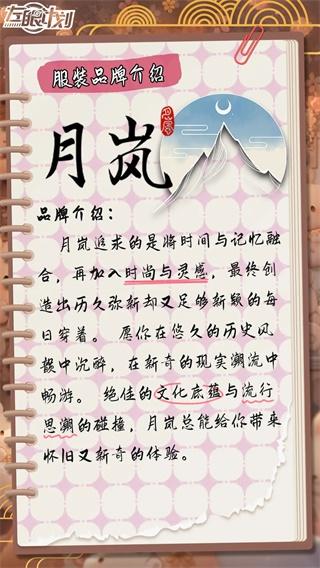 左眼计划
服装品牌介绍
月岚
月岚
品牌介绍：
月岚追求的是将时间与记忆融
合，再加入时尚与灵感，最终创
造出历久弥新却又足够新颖的每
日穿着。愿你在悠久的历史风
韵中沉醉，在新奇的现实潮流中
畅游。绝佳的文化底蕴与流行
思潮的碰撞，月岚总能给你带来
怀旧又新奇的体验。